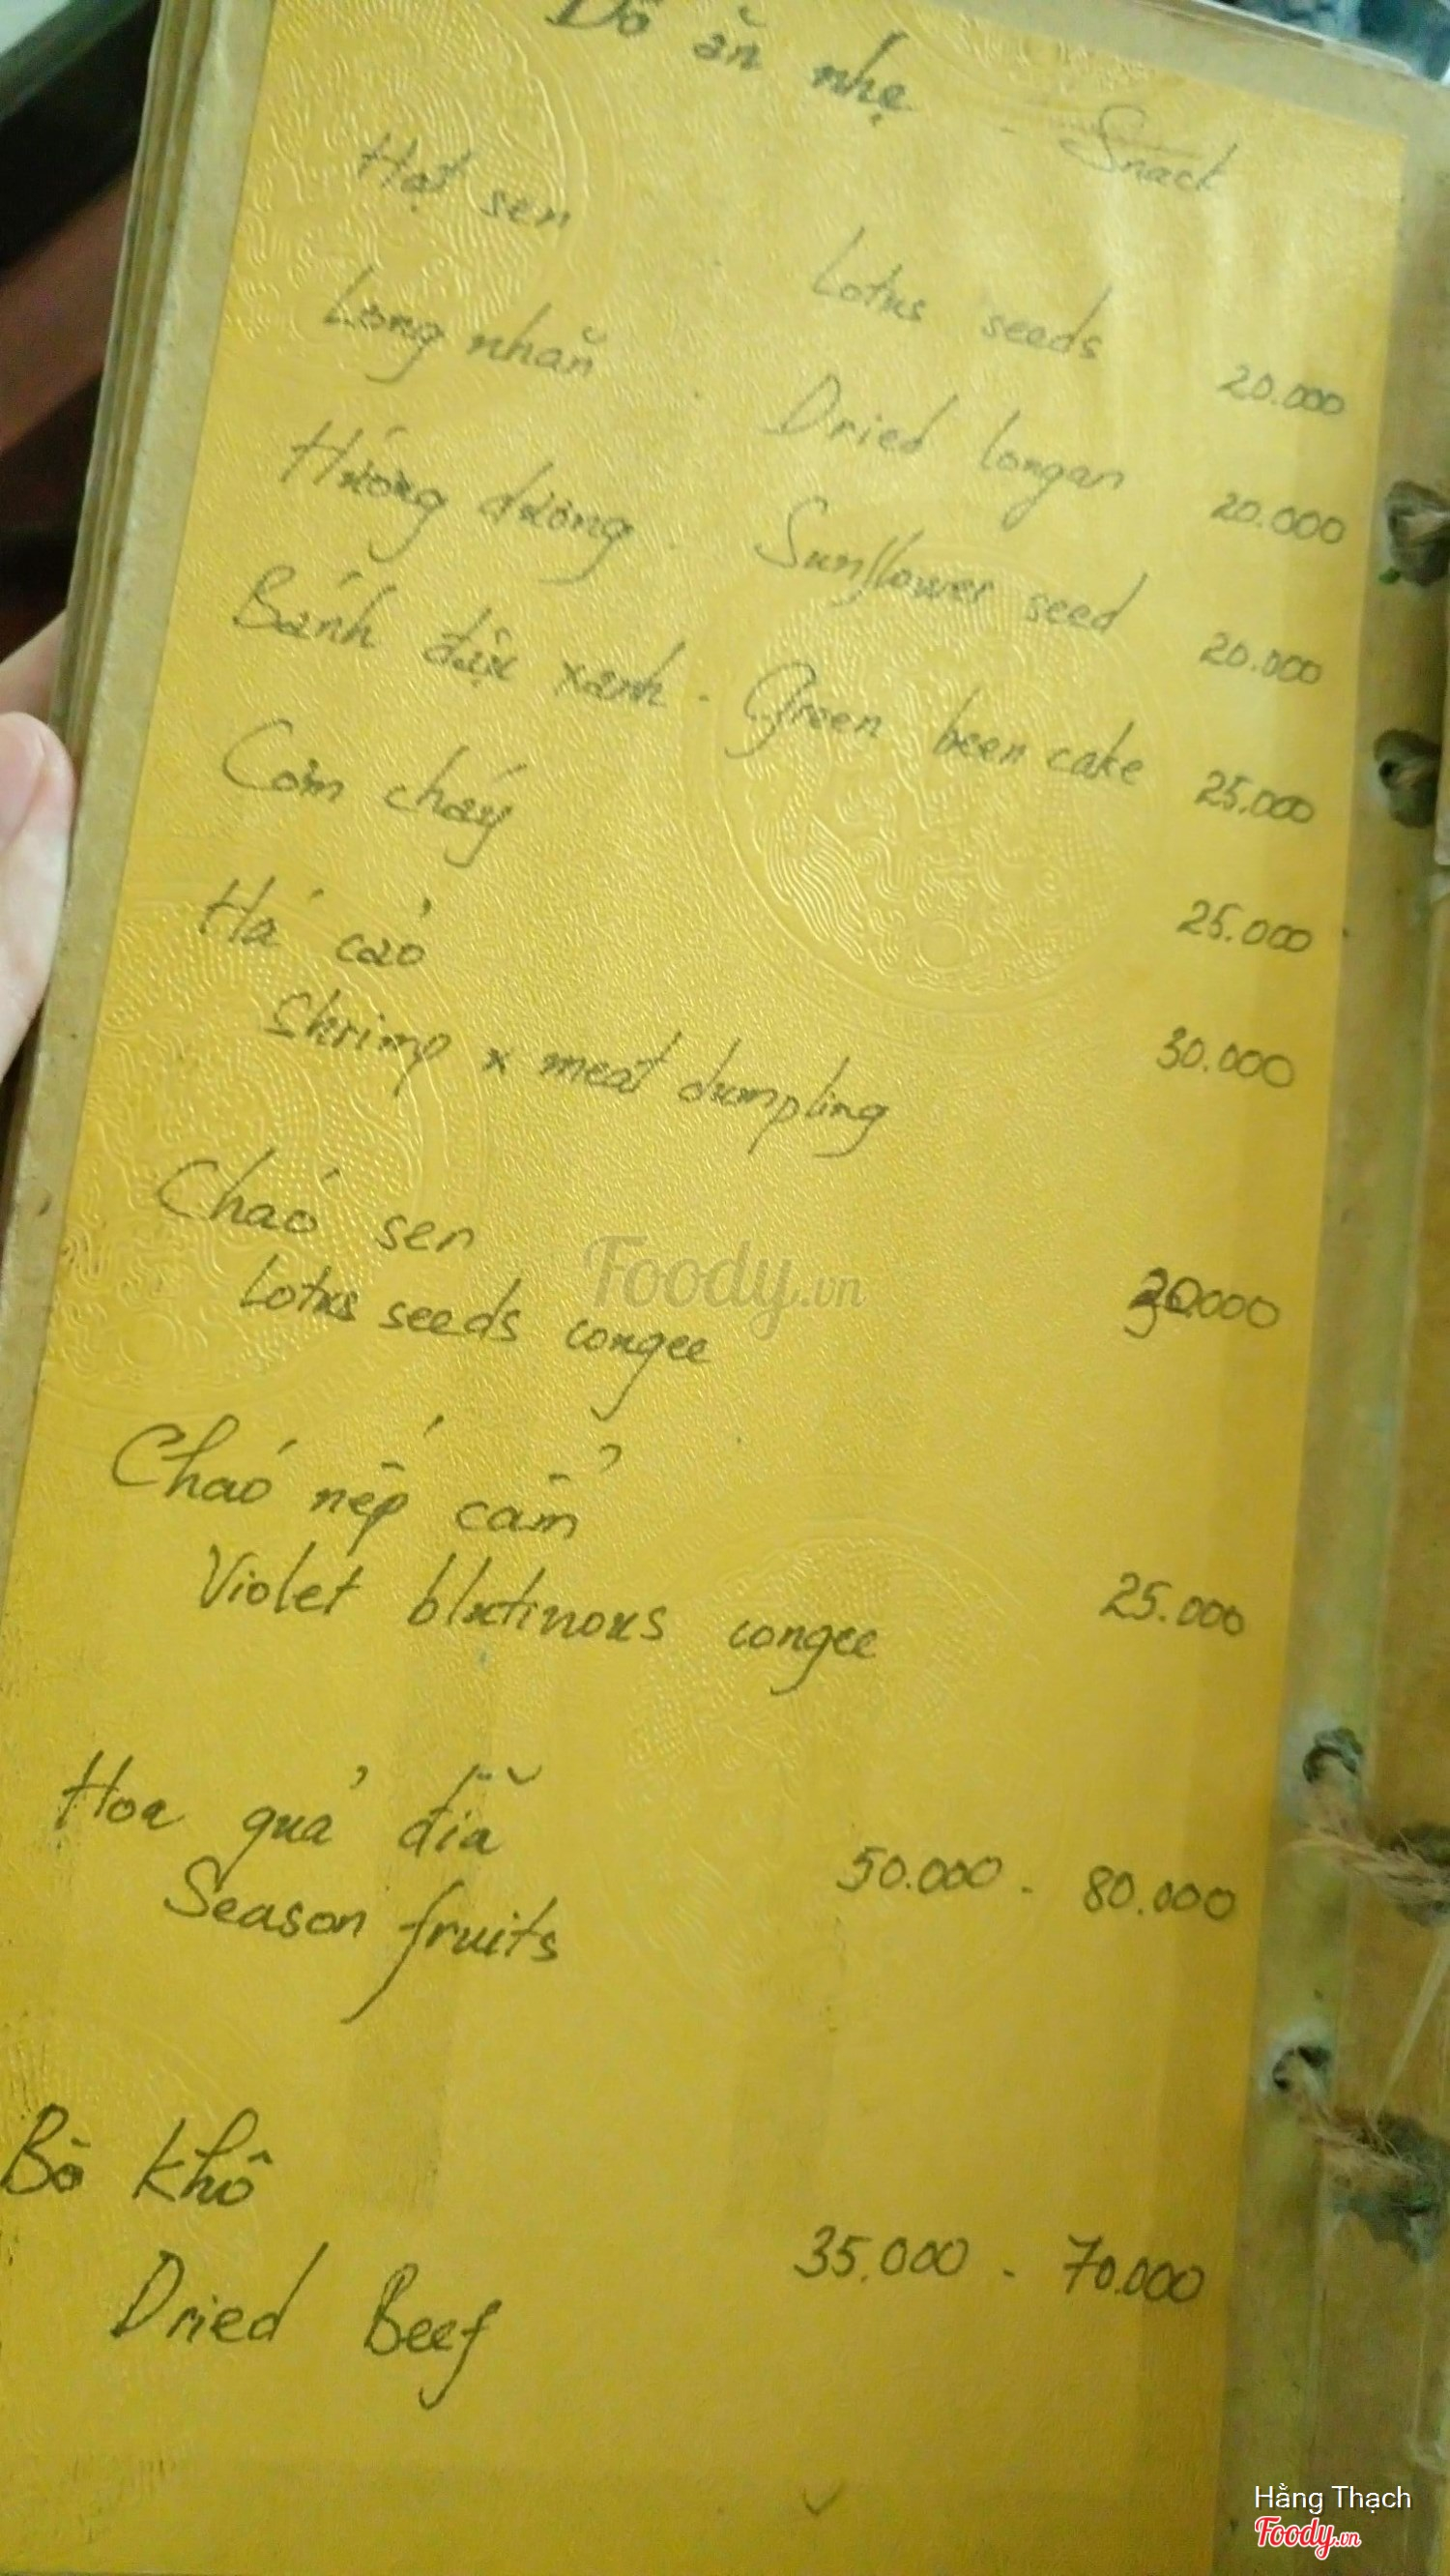 Đồ ăn nhẹ - Snack
Hạt sen - Lotus seeds 20.000
Long nhãn - Dried longan 20.000
Hướng dương - Sunflower seed 20.000
Bánh đậu xanh - Green been cake 25.000
Cơm cháy 25.000
Há cảo 30.000
Shrimp x meat dumpling
Cháo sen
Lotus seeds congee
Cháo nếp cẩm 25.000
Violet blutinous congee
Hoa quả đĩa 50.000 - 80.000
Season fruits
Bò khô 35.000 - 70.000
Dried Beef
Foody.vn
Hằng Thạch
Foody.vn